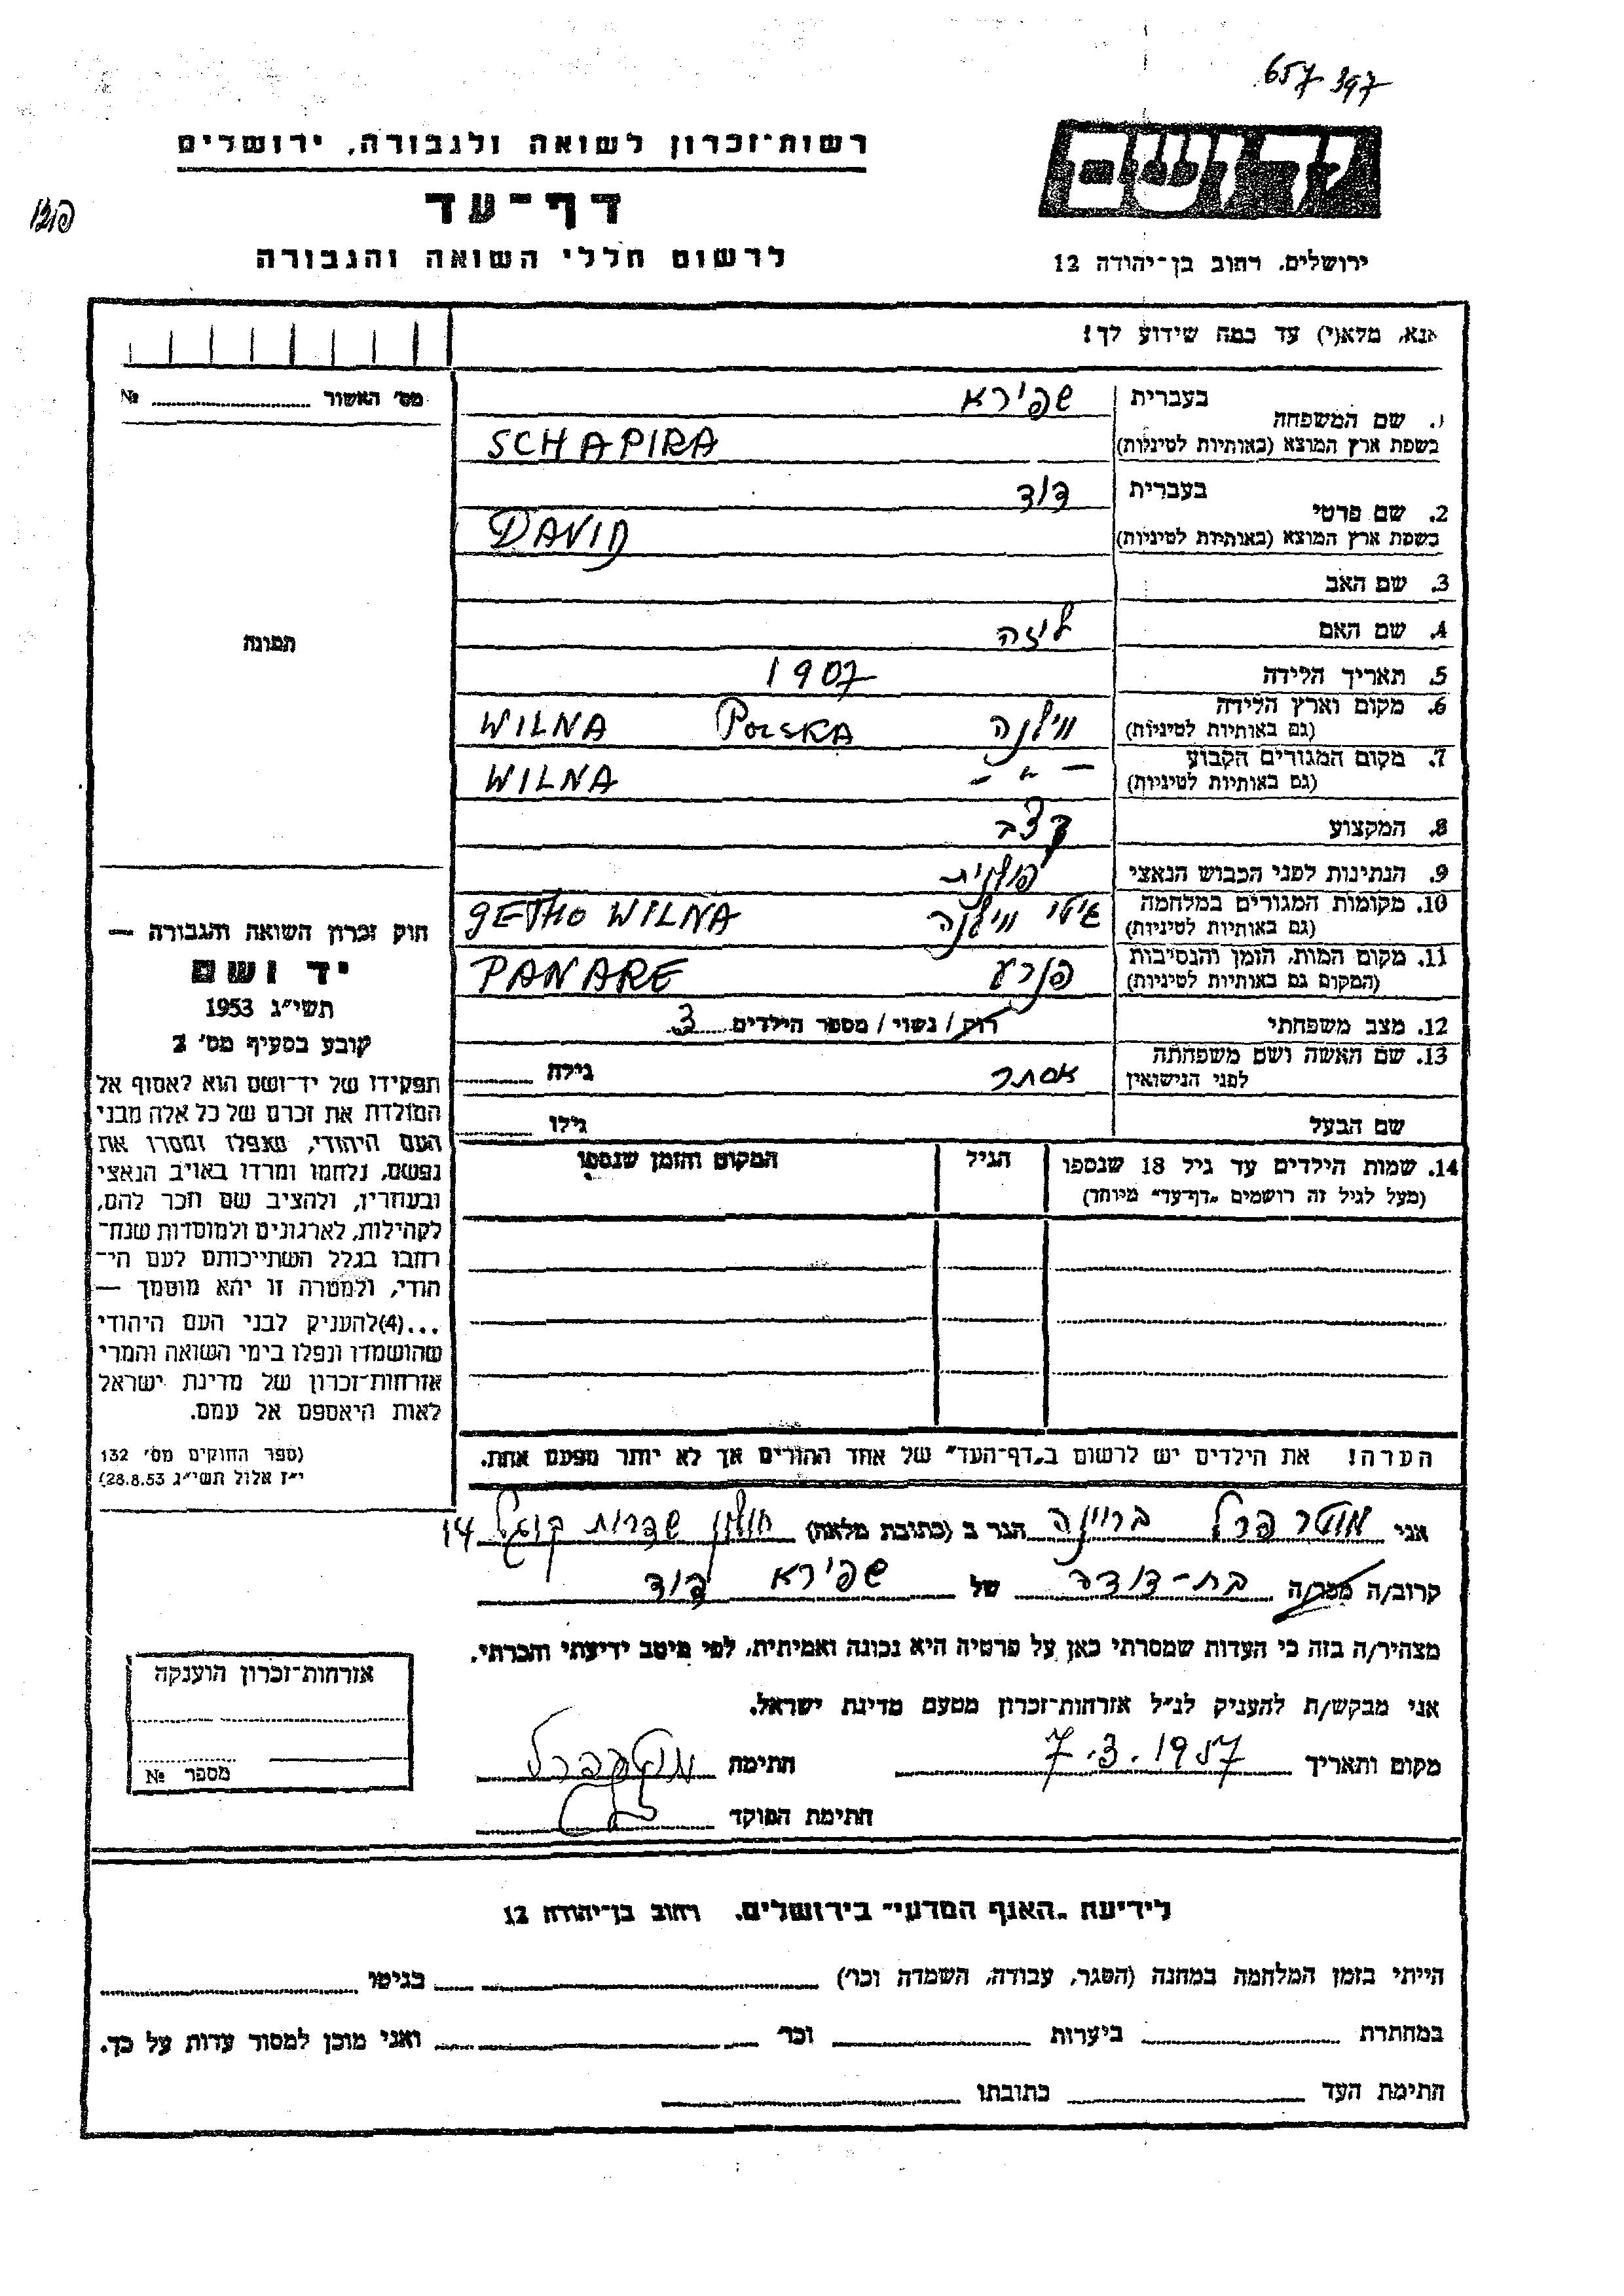 657 397
רשות־זכרון לשואה ולגבורה, ירושלים
דף־עד
לרשום חללי השואה והגבורה
ירושלים, רחוב בן־יהודה 12
אנא, מלא(י) עד כמה שידוע לך!
מס' האשור №
1. שם המשפחה
בעברית שפירא
בשפת ארץ המוצא (באותיות לטיניות) SCHAPIRA
2. שם פרטי
בעברית דוד
בשפת ארץ המוצא (באותיות לטיניות) DAVID
3. שם האב
4. שם האם ליזה
5. תאריך הלידה 1907
6. מקום וארץ הלידה (גם באותיות לטיניות) ווילנה POLSKA WILNA
7. מקום המגורים הקבוע (גם באותיות לטיניות) — " — WILNA
8. המקצוע קצב
9. הנתינות לפני הכבוש הנאצי פולנית
10. מקומות המגורים במלחמה (גם באותיות לטיניות) גיטו ווילנה GETHO WILNA
11. מקום המות, הזמן והנסיבות (המקום גם באותיות לטיניות) פנרע PANARE
12. מצב משפחתי רווק / נשוי / מספר הילדים 3
13. שם האשה ושם משפחתה לפני הנישואין אסתר גילה
שם הבעל גילו
14. שמות הילדים עד גיל 18 שנספו
(מעל לגיל זה רושמים "דף־עד" מיוחד)
הגיל
המקום והזמן שנספו
הערה! את הילדים יש לרשום ב"דף־העד" של אחד ההורים אך לא יותר מפעם אחת.
תמונה
חוק זכרון השואה והגבורה —
יד ושם
תשי"ג 1953
קובע בסעיף מס' 2
תפקידו של יד־ושם הוא לאסוף אל
המולדת את זכרם של כל אלה מבני
העם היהודי, שנפלו ומסרו את
נפשם, נלחמו ומרדו באויב הנאצי
ובעוזריו, ולהציב שם וזכר להם,
לקהילות, לארגונים ולמוסדות שנח־
רבו בגלל השתייכותם לעם הי־
הודי, ולמטרה זו יהא מוסמך —
...(4) להעניק לבני העם היהודי
שהושמדו ונפלו בימי השואה והמרי
אזרחות־זכרון של מדינת ישראל
לאות היאספם אל עמם.
(ספר החוקים מס' 132
י"ז אלול תשי"ג 28.8.53)
אני מוטר פרל ברוינה הגר ב (כתובת מלאה) חולון שדרות קוגל 14
קרוב/ה מכר/ה בת-דודה של שפירא דוד
מצהיר/ה בזה כי העדות שמסרתי כאן על פרטיה היא נכונה ואמיתית, לפי מיטב ידיעתי והכרתי.
אני מבקש/ת להעניק לנ"ל אזרחות־זכרון מטעם מדינת ישראל.
מקום ותאריך 7.3.1957 חתימה
חתימת הפוקד
אזרחות־זכרון הוענקה
מספר №
לידיעת "האגף המדעי" בירושלים, רחוב בן־יהודה 12
הייתי בזמן המלחמה במחנה (הסגר, עבודה, השמדה וכו') בגיטו
במחתרת ביערות וכו' ואני מוכן למסור עדות על כך.
חתימת העד כתובתו